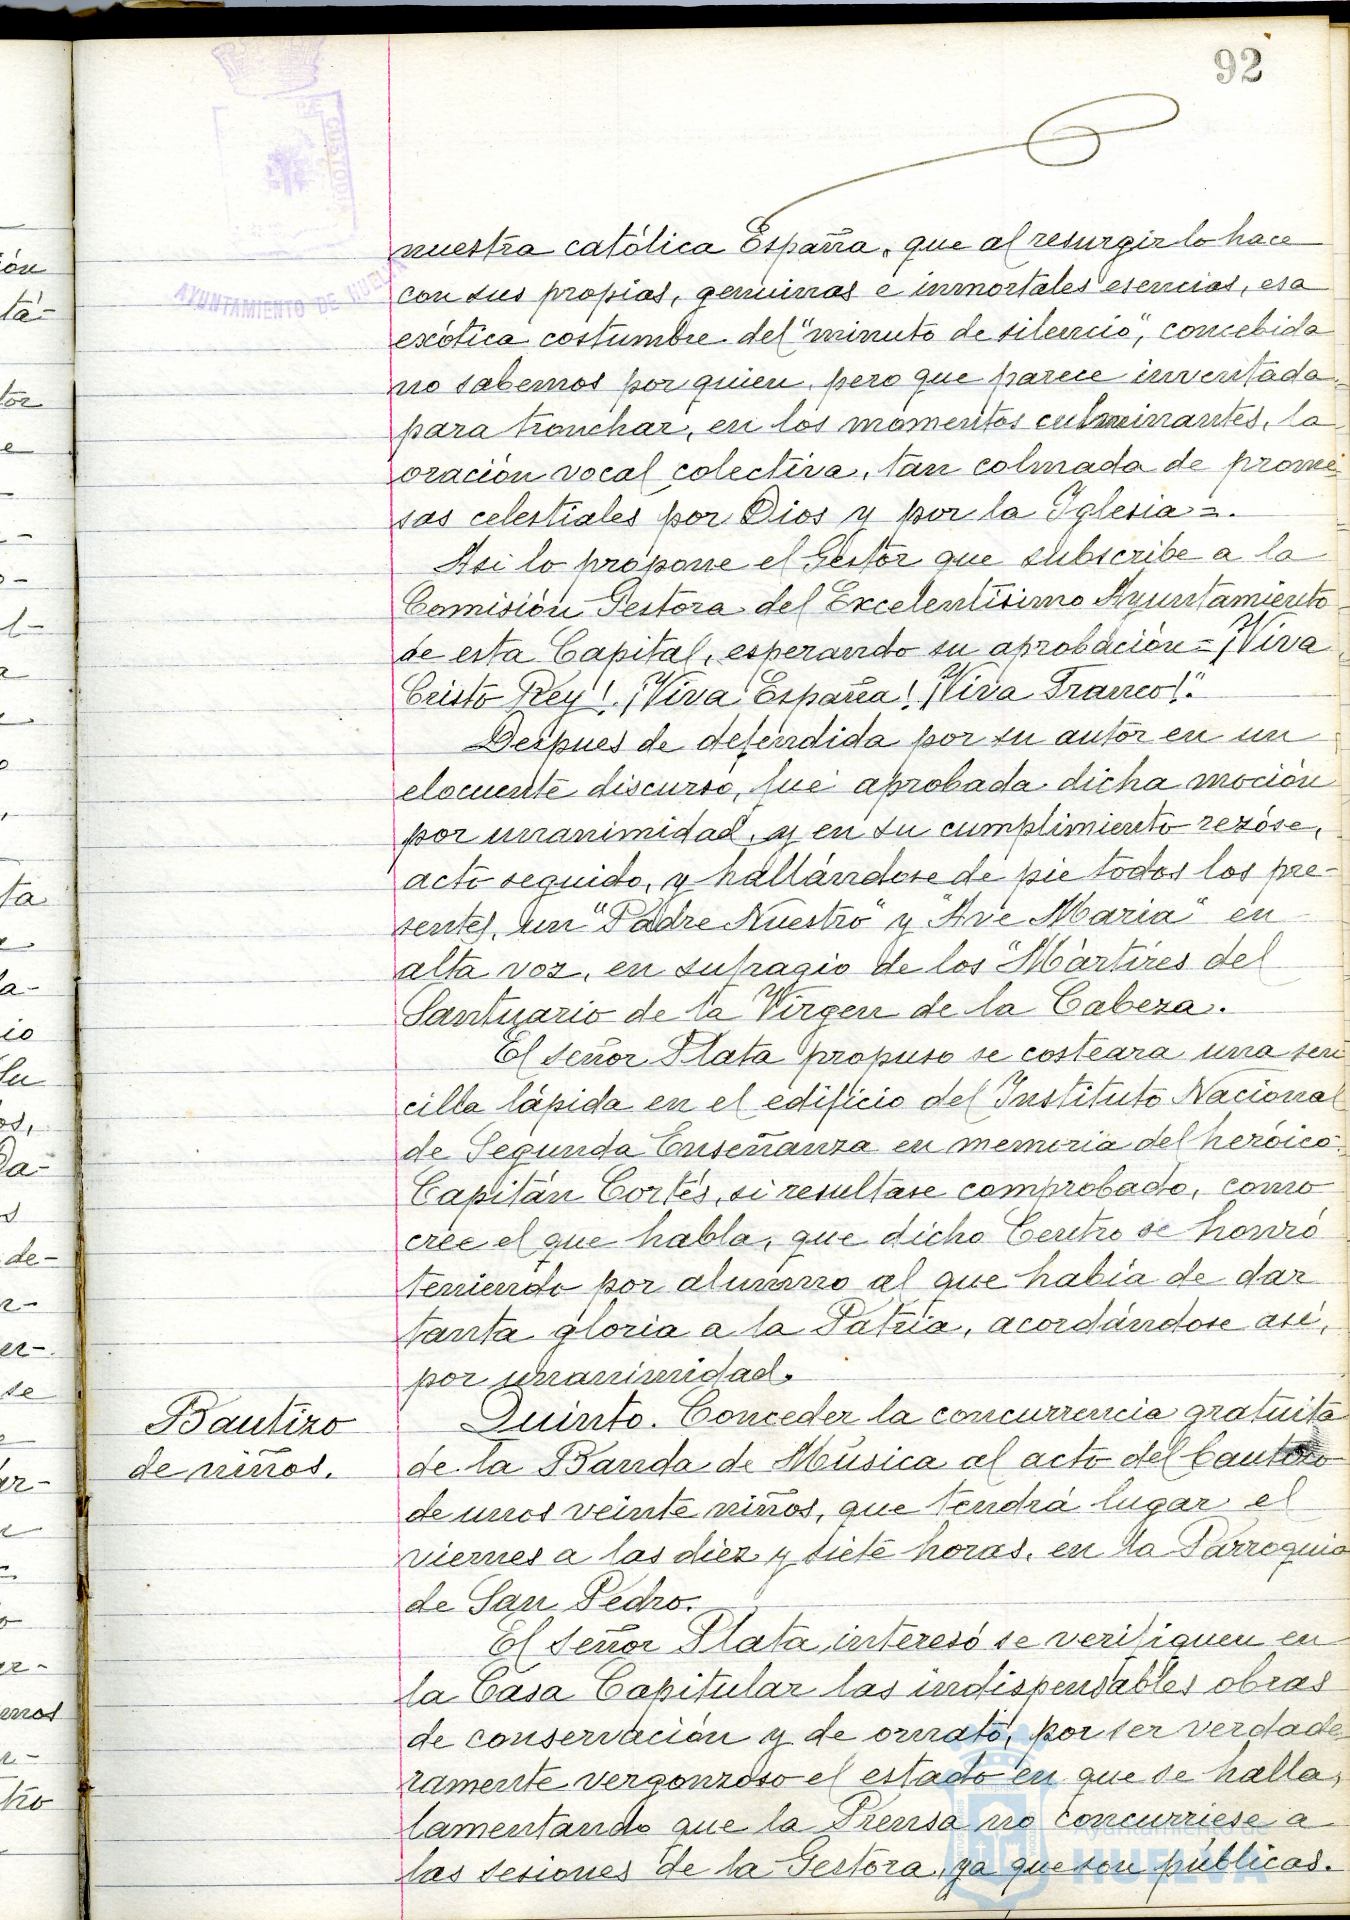 92
CUSTODIA
AYUNTAMIENTO DE HUELVA
nuestra católica España, que al resurgir lo hace
con sus propias, genuinas é inmortales esencias, esa
exótica costumbre del "minuto de silencio", concebida
no sabemos por quien, pero que parece inventada
para tronchar, en los momentos culminantes, la
oración vocal colectiva, tan colmada de prome-
sas celestiales por Dios y por la Iglesia=.
Asi lo propone el Gestor que subscribe a la
Comisión Gestora del Excelentísimo Ayuntamiento
de esta Capital, esperando su aprobación= ¡Viva
Cristo Rey! ¡Viva España! ¡Viva Franco!".
Despues de defendida por su autor en un
elocuente discurso, fué aprobada dicha moción
por unanimidad, y en su cumplimiento rezóse,
acto seguido, y hallándose de pie todos los pre-
sentes, un "Padre Nuestro" y "Ave Maria" en
alta voz, en sufragio de los "Mártires del
Santuario de la Virgen de la Cabeza.
El señor Plata propuso se costeara una sen
cilla lápida en el edificio del Instituto Nacional
de Segunda Enseñanza en memoria del heróico
Capitán Cortés, si resultase comprobado, como
cree el que habla, que dicho Centro se honró
teniendo por alumno al que había de dar
tanta gloria a la Patria, acordándose así,
por unanimidad.
Bautizo
de niños.
Quinto. Conceder la concurrencia gratuita
de la Banda de Música al acto del bautizo
de unos veinte niños, que tendrá lugar el
viernes a las diez y siete horas, en la Parroquia
de San Pedro.
El señor Plata interesó se verifiquen en
la Casa Capitular las indispensables obras
de conservación y de ornato, por ser verdade
ramente vergonzoso el estado en que se halla,
lamentando que la Prensa no concurriese a
las sesiones de la Gestora, ya que son públicas.
Ayuntamiento de
HUELVA